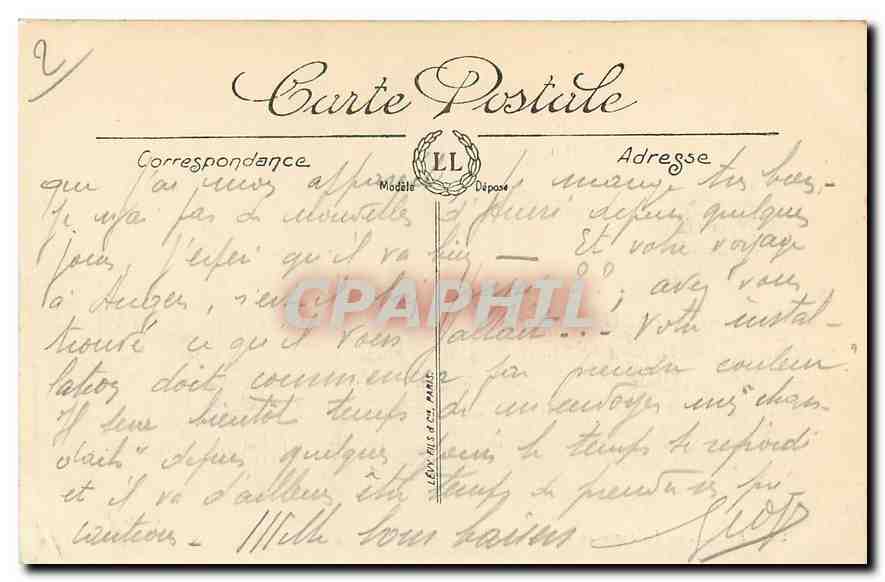 2)
Carte Postale
LL
Correspondance
Adresse
Modèle Déposé
que j'ai mon je mange très bien -
Je n'ai pas de nouvelles d'Henri depuis quelques
jours, j'espère qu'il va bien — Et votre voyage
à Angers, s'est-il ; avez vous
trouvé ce qu'il vous fallait... Votre instal-
lation doit commencer par prendre couleur.
Il sera bientôt temps de m'envoyer mes "chan-
dails" depuis quelques jours le temps se refroidi
et il va d'ailleurs être temps de prendre ses pré
cautions - Mille bons baisers
CPAPHIL
LÉVY FILS & Cie, PARIS.